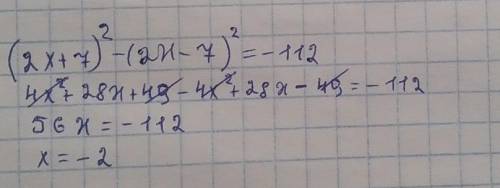 (2x+7)² - (2x-7)² = -112
4x² + 28x + 49 - 4x² + 28x - 49 = -112
56x = -112
x = -2